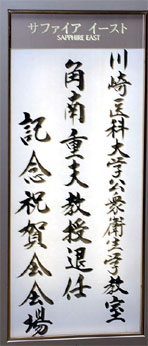 サファイア イースト
SAPPHIRE EAST
川崎医科大学公衆衛生学教室
角南重夫教授退任
記念祝賀会会場